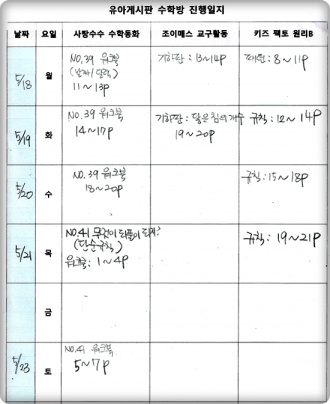 유아게시판 수학방 진행일지
날짜 요일 사탕수수 수학동화 조이매스 교구활동 키즈 팩토 원리B
5/18 월 NO.39 워크북 11~13p 기하판 : 13~14p : 8~11p
5/19 화 NO.39 워크북 14~17p 기하판 : 19~20p 규칙 : 12~14p
5/20 수 NO.39 워크북 18~20p 규칙 : 15~18p
5/21 목 NO.41 무엇이 (단순규칙) 워크북 : 1~4p 규칙 : 19~21p
금
5/23 토 NO.41 워크북 5~7p